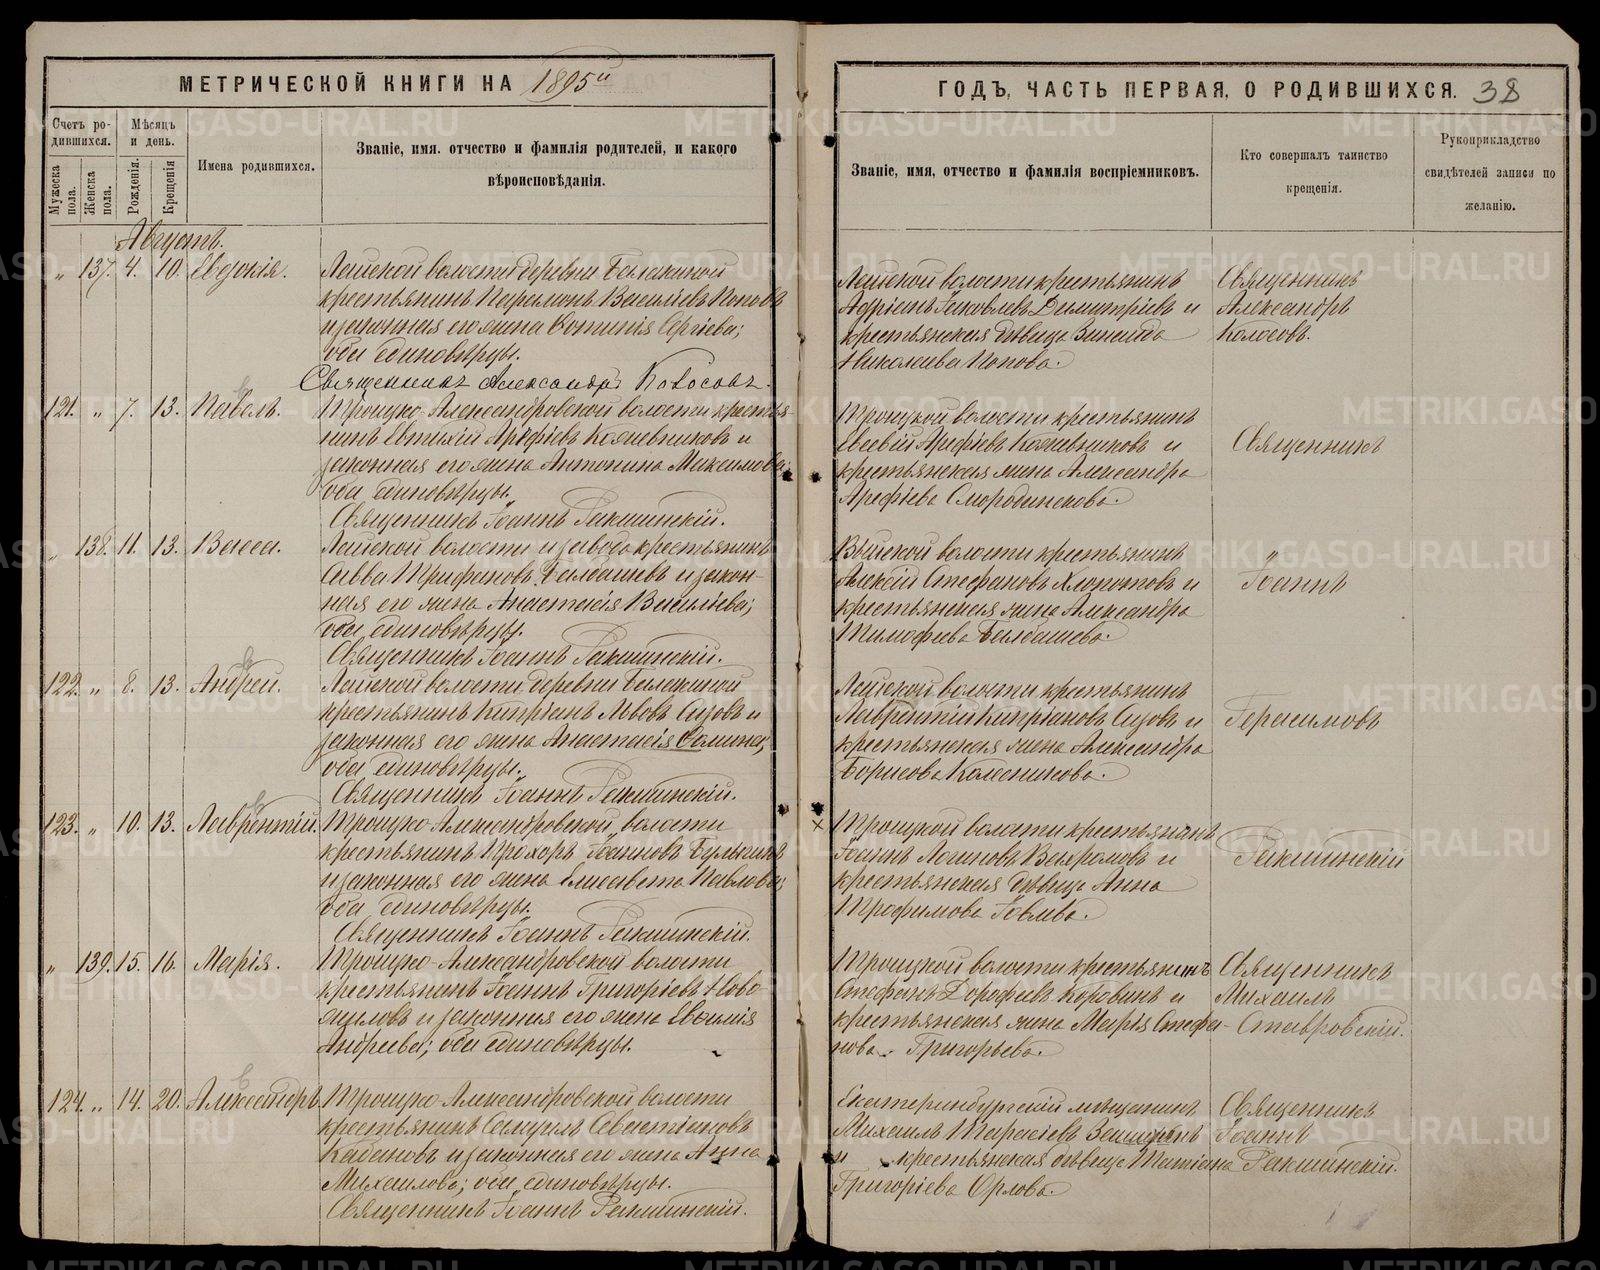 МЕТРИЧЕСКОЙ КНИГИ НА 1895й
Счетъ родившихся.
Мужеска пола.
Женска пола.
Мѣсяцъ и день.
Рожденія.
Крещенія
Имена родившихся.
Званіе, имя. отчество и фамилія родителей, и какого
вѣроисповѣданія.
Августъ.
„ 137. 4. 10. Евдокія. Лайской волости деревни Балакиной
крестьянинъ Парамонъ Василіевъ Поповъ
и законная его жена Фотинія Сергіева;
оба единовѣрцы.
Священникъ Александръ Колосовъ.
121. „ 7. 13. Павелъ. Троицко-Александровской волости крестья-
нинъ Евтихій Арефіевъ Кожевниковъ и
законная его жена Антонина Максимова;
оба единовѣрцы.
Священникъ Іоаннъ Ракшинскій.
„ 138. 11. 13. Васса. Лайской волости и завода крестьянинъ
Савва Трифановъ Балбашевъ и закон-
ная его жена Анастасія Василіева;
оба единовѣрцы.
Священникъ Іоаннъ Ракшинскій.
122. „ 8. 13. Андрей. Лайской волости деревни Балакиной
крестьянинъ Кипріанъ Львовъ Сизовъ и
законная его жена Анастасія Фомина;
оба единовѣрцы.
Священникъ Іоаннъ Ракшинскій.
123. „ 10. 13. Лаврентій. Троицко-Александровской волости
крестьянинъ Прохоръ Іоанновъ Булыгинъ
и законная его жена Елисавета Павлова;
оба единовѣрцы.
Священникъ Іоаннъ Ракшинскій.
„ 139. 15. 16. Марія. Троицко-Александровской волости
крестьянинъ Іоаннъ Григоріевъ Ново-
жиловъ и законная его жена Евфимія
Андреева; оба единовѣрцы.
124. „ 14. 20. Александръ. Троицко-Александровской волости
крестьянинъ Самуилъ Савастіановъ
Кабановъ и законная его жена Анна
Михаилова; оба единовѣрцы.
Священникъ Іоаннъ Ракшинскій.
ГОДЪ, ЧАСТЬ ПЕРВАЯ, О РОДИВШИХСЯ. 38
Званіе, имя, отчество и фамилія воспріемниковъ.
Кто совершалъ таинство
крещенія.
Рукоприкладство
свидѣтелей записи по
желанію.
Лайской волости крестьянинъ Священникъ
Адріанъ Іаковлевъ Димитріевъ и Александръ
крестьянская дѣвица Зинаида Колосовъ.
Николаева Попова.
Троицкой волости крестьянинъ
Евсевій Арефіевъ Кожевниковъ и Священникъ
крестьянская жена Александра
Арефіева Смородинскова.
Выйской волости крестьянинъ „
Алексій Стефановъ Хлопотовъ и Іоаннъ
крестьянская жена Александра
Тимофеева Балбашева.
Лайской волости крестьянинъ
Лаврентій Кипріановъ Сизовъ и Герасимовъ
крестьянская жена Александра
Борисова Колесникова.
Троицкой волости крестьянинъ
Іоаннъ Логиновъ Вахромовъ и Ракшинскій
крестьянская дѣвица Анна
Трофимова Іовлева.
Троицкой волости крестьянинъ Священникъ
Стефанъ Дорофеевъ Коровинъ и Михаилъ
крестьянская жена Марія Стефа- Ставровскій.
нова Григорьева.
Екатеринбургскій мѣщанинъ Священникъ
Михаилъ Тарасіевъ Іоаннъ
и крестьянская дѣвица Татіана Ракшинскій.
Григоріева Орлова.
METRIKI.GASO-URAL.RU